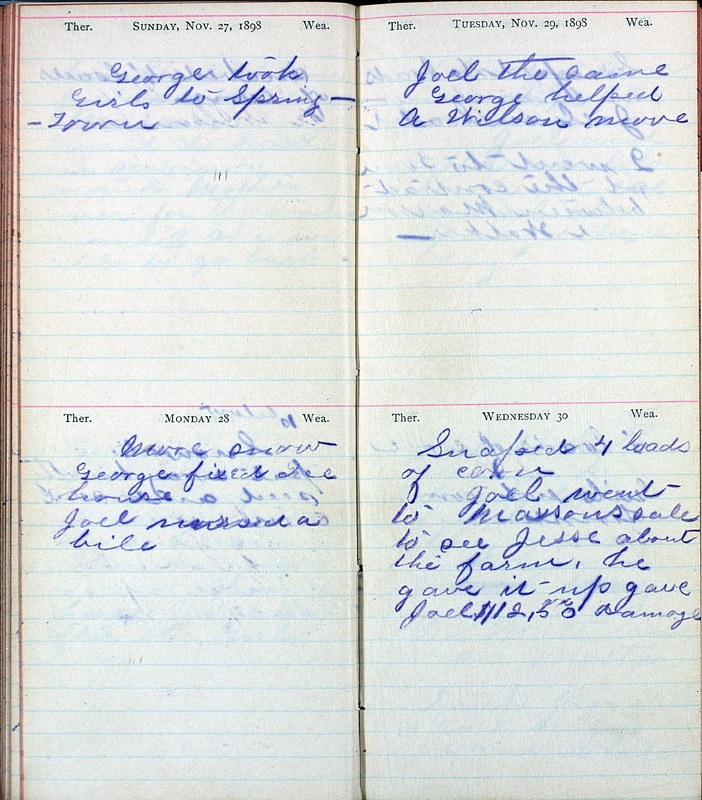 Ther. SUNDAY, NOV. 27, 1898 Wea.
George took
Girls to Spring-
-Town
Ther. MONDAY 28 Wea.
More snow
George fixed Ice
house
Joel nursed a
bile
Ther. TUESDAY, NOV. 29, 1898 Wea.
Joel the same
George helped
A Wilson move
Ther. WEDNESDAY 30 Wea.
Snaped 4 loads
of corn
Joel went
to Massons sale
to see Jesse about
the farm, he
gave it up gave
Joel $112,50 Damage